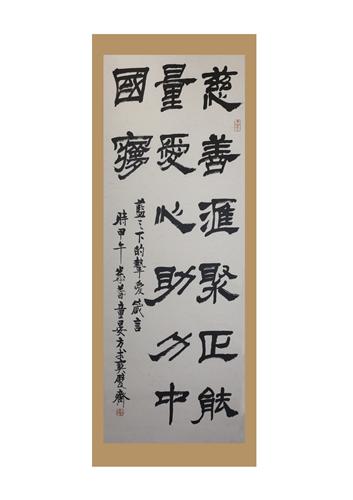 慈善滙聚正能
量愛心助力中
國夢
藍天下的摯愛箴言
時甲午童晏方甓齋